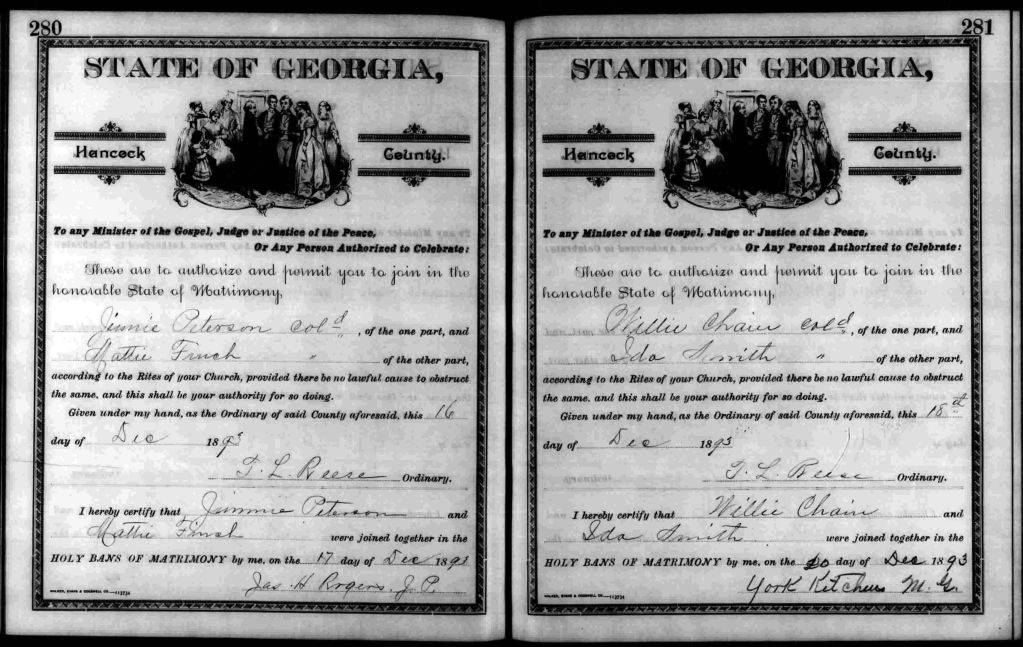 280
STATE OF GEORGIA,
Hancock County.
To any Minister of the Gospel, Judge or Justice of the Peace,
Or Any Person Authorized to Celebrate:
These are to authorize and permit you to join in the
honorable State of Matrimony,
Jimmie Peterson Cold, of the one part, and
Mattie Finch " of the other part,
according to the Rites of your Church, provided there be no lawful cause to obstruct
the same, and this shall be your authority for so doing.
Given under my hand, as the Ordinary of said County aforesaid, this 16
day of Dec 1893
T. L. Reese Ordinary.
I hereby certify that Jimmie Peterson and
Mattie Finch were joined together in the
HOLY BANS OF MATRIMONY by me, on the 17 day of Dec 1893
Jas. H Rogers, J. P.
WALKER, EVANS & COGSWELL CO.—113734
281
STATE OF GEORGIA,
Hancock County.
To any Minister of the Gospel, Judge or Justice of the Peace,
Or Any Person Authorized to Celebrate:
These are to authorize and permit you to join in the
honorable State of Matrimony,
Willie Chain Cold, of the one part, and
Ida Smith " of the other part,
according to the Rites of your Church, provided there be no lawful cause to obstruct
the same, and this shall be your authority for so doing.
Given under my hand, as the Ordinary of said County aforesaid, this
day of Dec 1893
T. L. Reese Ordinary.
I hereby certify that Willie Chain and
Ida Smith were joined together in the
HOLY BANS OF MATRIMONY by me, on the day of Dec 1893
York Ketchens M. G.
WALKER, EVANS & COGSWELL CO.—113734